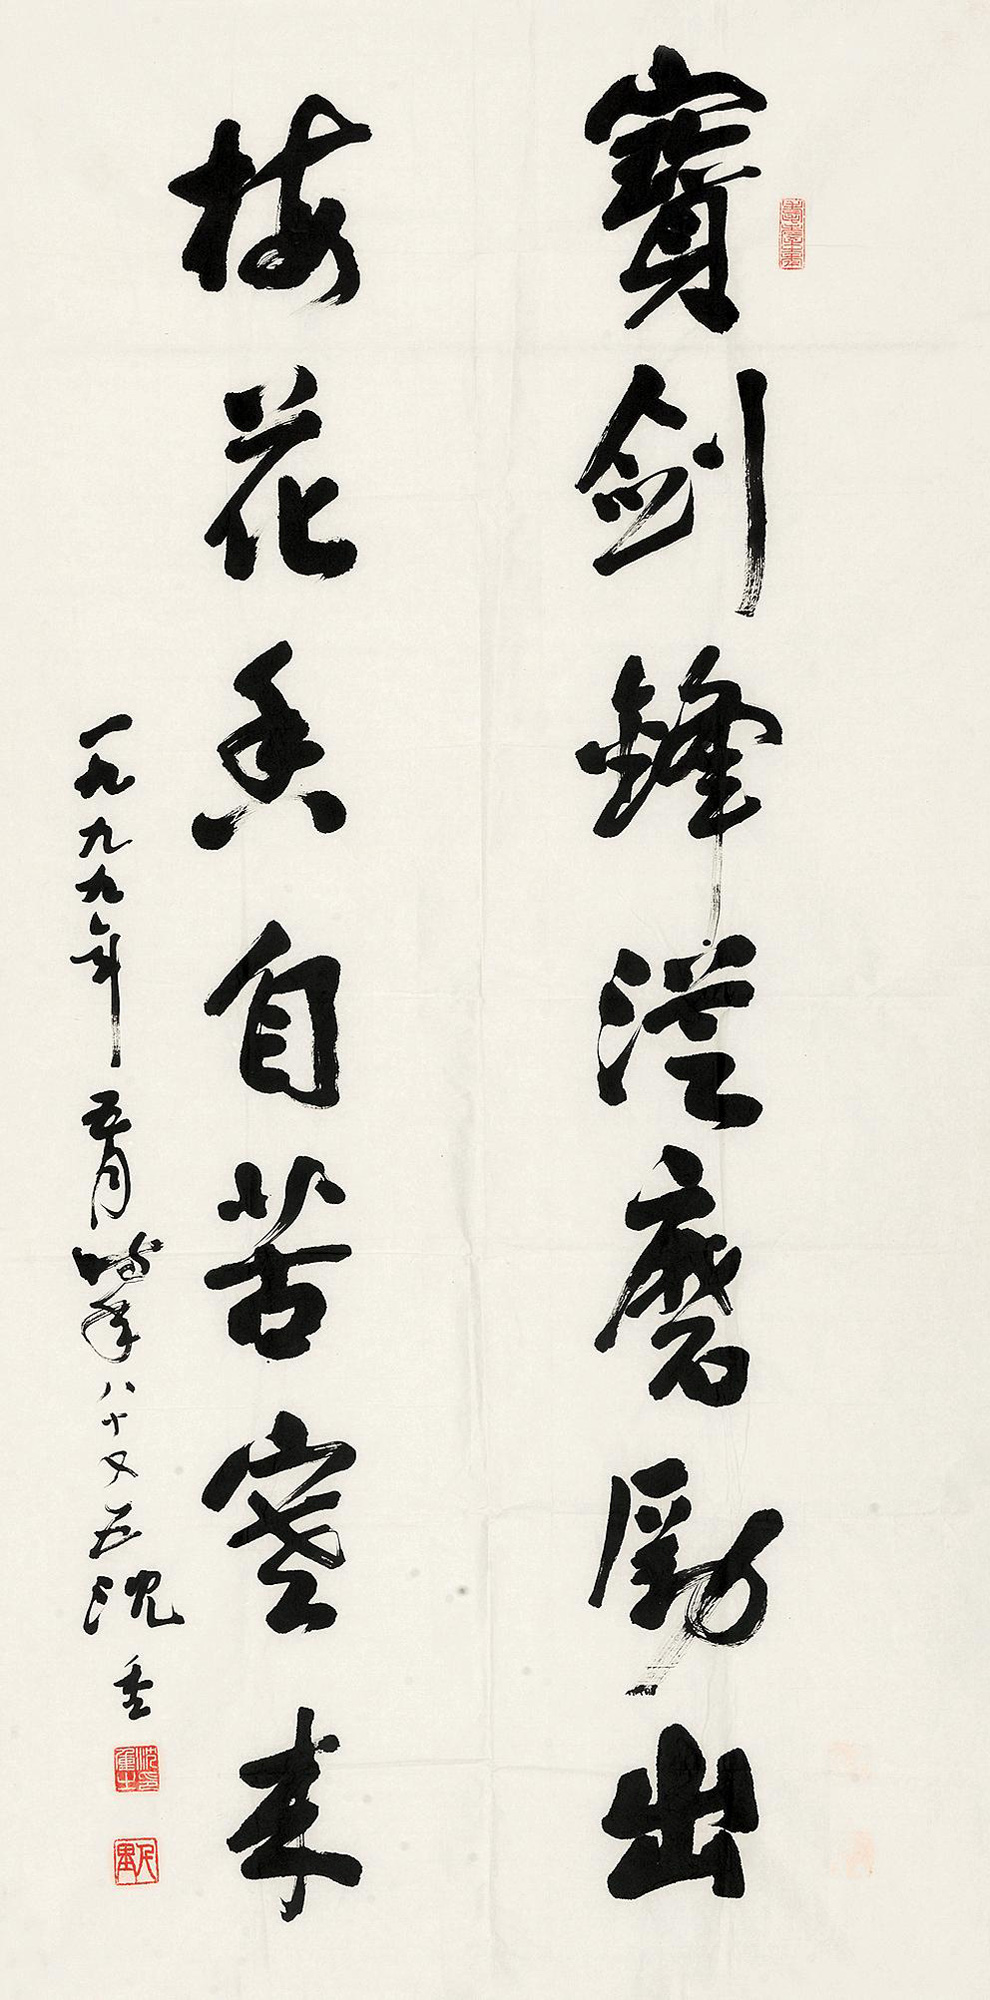 寶劍鋒從磨勵出
梅花香自苦寒來
一九九九年五月時年八十又五沈重